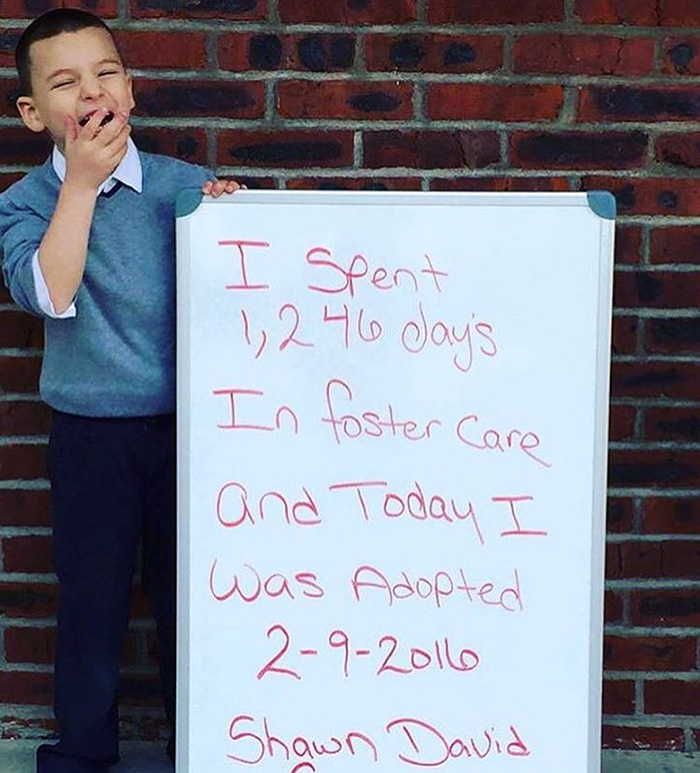 I Spent
1,246 day's
In foster care
and Today I
Was Adopted
2-9-2016
Shawn David